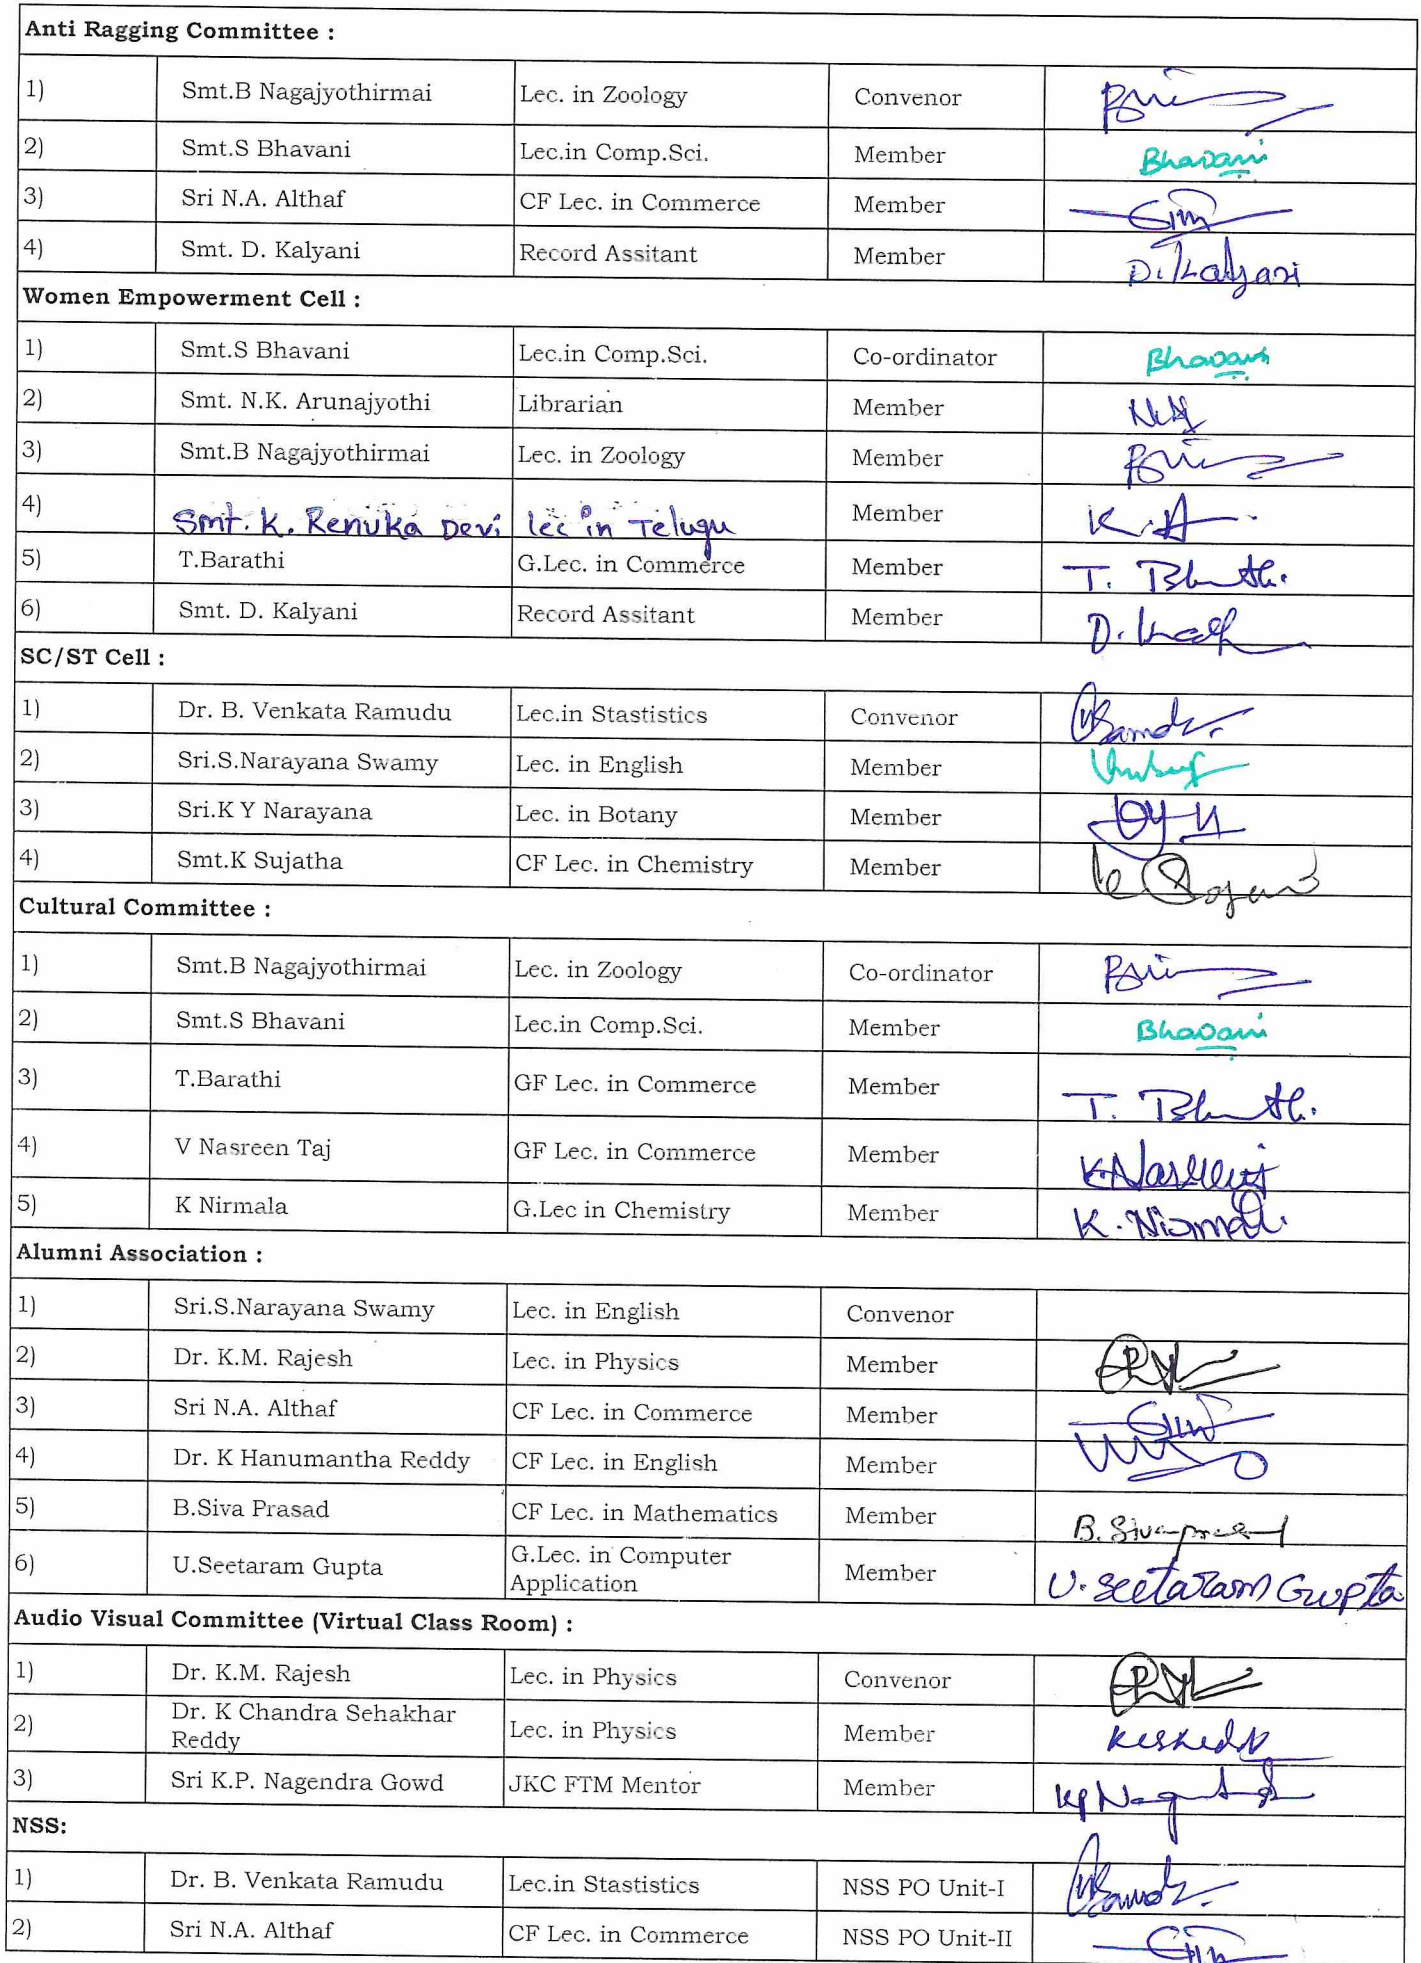 Anti Ragging Committee :
1) Smt.B Nagajyothirmai Lec. in Zoology Convenor
2) Smt.S Bhavani Lec.in Comp.Sci. Member Bhavani
3) Sri N.A. Althaf CF Lec. in Commerce Member
4) Smt. D. Kalyani Record Assitant Member D. Kalyani
Women Empowerment Cell :
1) Smt.S Bhavani Lec.in Comp.Sci. Co-ordinator Bhavani
2) Smt. N.K. Arunajyothi Librarian Member
3) Smt.B Nagajyothirmai Lec. in Zoology Member
4) Smt. K. Renuka Devi lec in Telugu Member
5) T.Barathi G.Lec. in Commerce Member T.
6) Smt. D. Kalyani Record Assitant Member D.
SC/ST Cell :
1) Dr. B. Venkata Ramudu Lec.in Stastistics Convenor
2) Sri.S.Narayana Swamy Lec. in English Member
3) Sri.K Y Narayana Lec. in Botany Member
4) Smt.K Sujatha CF Lec. in Chemistry Member
Cultural Committee :
1) Smt.B Nagajyothirmai Lec. in Zoology Co-ordinator
2) Smt.S Bhavani Lec.in Comp.Sci. Member Bhavani
3) T.Barathi GF Lec. in Commerce Member T.
4) V Nasreen Taj GF Lec. in Commerce Member
5) K Nirmala G.Lec in Chemistry Member K. Nirmala
Alumni Association :
1) Sri.S.Narayana Swamy Lec. in English Convenor
2) Dr. K.M. Rajesh Lec. in Physics Member
3) Sri N.A. Althaf CF Lec. in Commerce Member
4) Dr. K Hanumantha Reddy CF Lec. in English Member
5) B.Siva Prasad CF Lec. in Mathematics Member B. Sivaprasad
6) U.Seetaram Gupta G.Lec. in Computer
Application Member U. Seetaram Gupta
Audio Visual Committee (Virtual Class Room) :
1) Dr. K.M. Rajesh Lec. in Physics Convenor
2) Dr. K Chandra Sehakhar
Reddy Lec. in Physics Member
3) Sri K.P. Nagendra Gowd JKC FTM Mentor Member
NSS:
1) Dr. B. Venkata Ramudu Lec.in Stastistics NSS PO Unit-I
2) Sri N.A. Althaf CF Lec. in Commerce NSS PO Unit-II